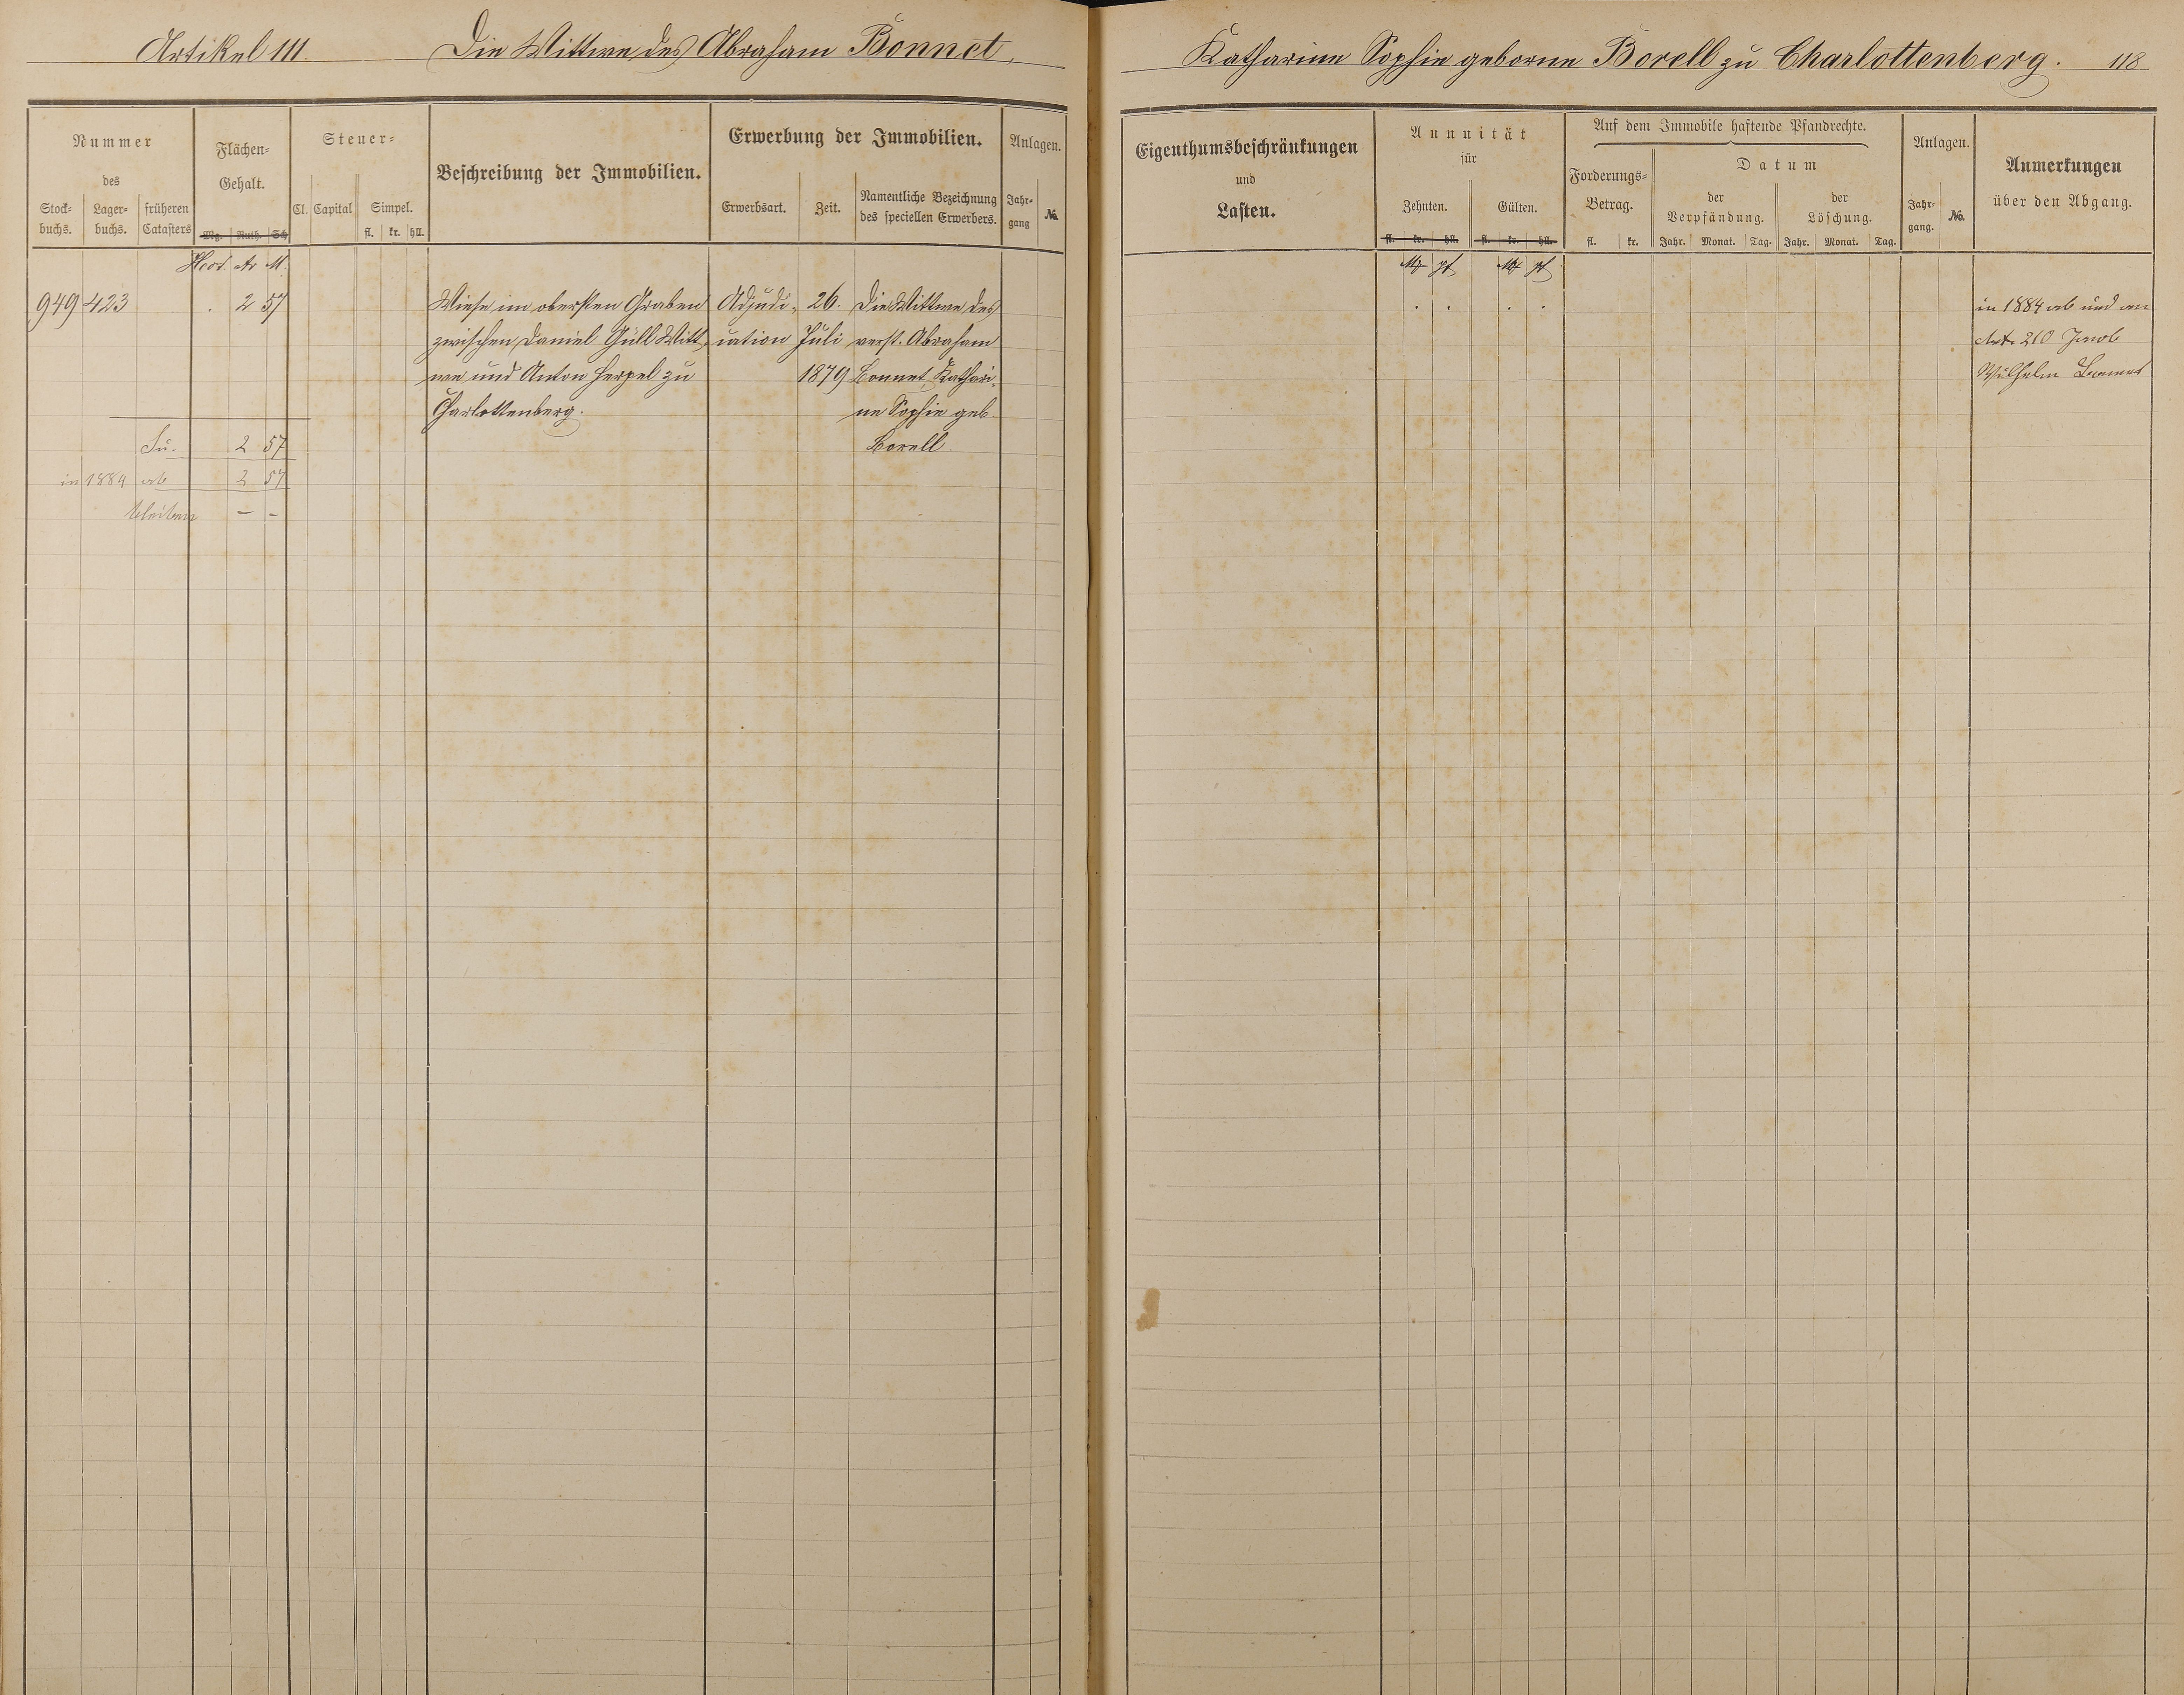 Artikel 111. Die Wittwe des Abraham Bonnet,
Nummer
des
Stock-
buchs.
Lager-
buchs.
früheren
Catasters
Flächen-
Gehalt.
Mg. Ruth. Sch
Hect. Ar M.
Steuer-
Cl. Capital Simpel.
fl. kr. hll.
Beschreibung der Immobilien.
Erwerbung der Immobilien.
Erwerbsart. Zeit.
Namentliche Bezeichnung
des speciellen Erwerbers.
Anlagen.
Jahr-
gang
No.
949 423 . 2 57 Wiese im obersten Graben Adjudi- 26. Die Wittwe des
zwischen Daniel Güll Witt- cation Juli verst. Abraham
we und Anton Herpel zu 1879 Bonnet, Kathari-
Charlottenberg. ne Sophie geb.
Su. 2 57 Borell
in 1884 ab 2 57
bleiben – –
Katharine Sophie geborne Borell zu Charlottenberg. 118
Eigenthumsbeschränkungen
und
Lasten.
Annuität
für
Zehnten. Gülten.
fl. kr. hll. fl. kr. hll.
Auf dem Immobile haftende Pfandrechte.
Forderungs-
Betrag.
fl. kr.
Datum
der
Verpfändung.
Jahr. Monat. Tag.
der
Löschung.
Jahr. Monat. Tag.
Anlagen.
Jahr-
gang.
No.
Anmerkungen
über den Abgang.
. . . . in 1884 ab und an
Art. 210 Jacob
Wilhelm Bonnet